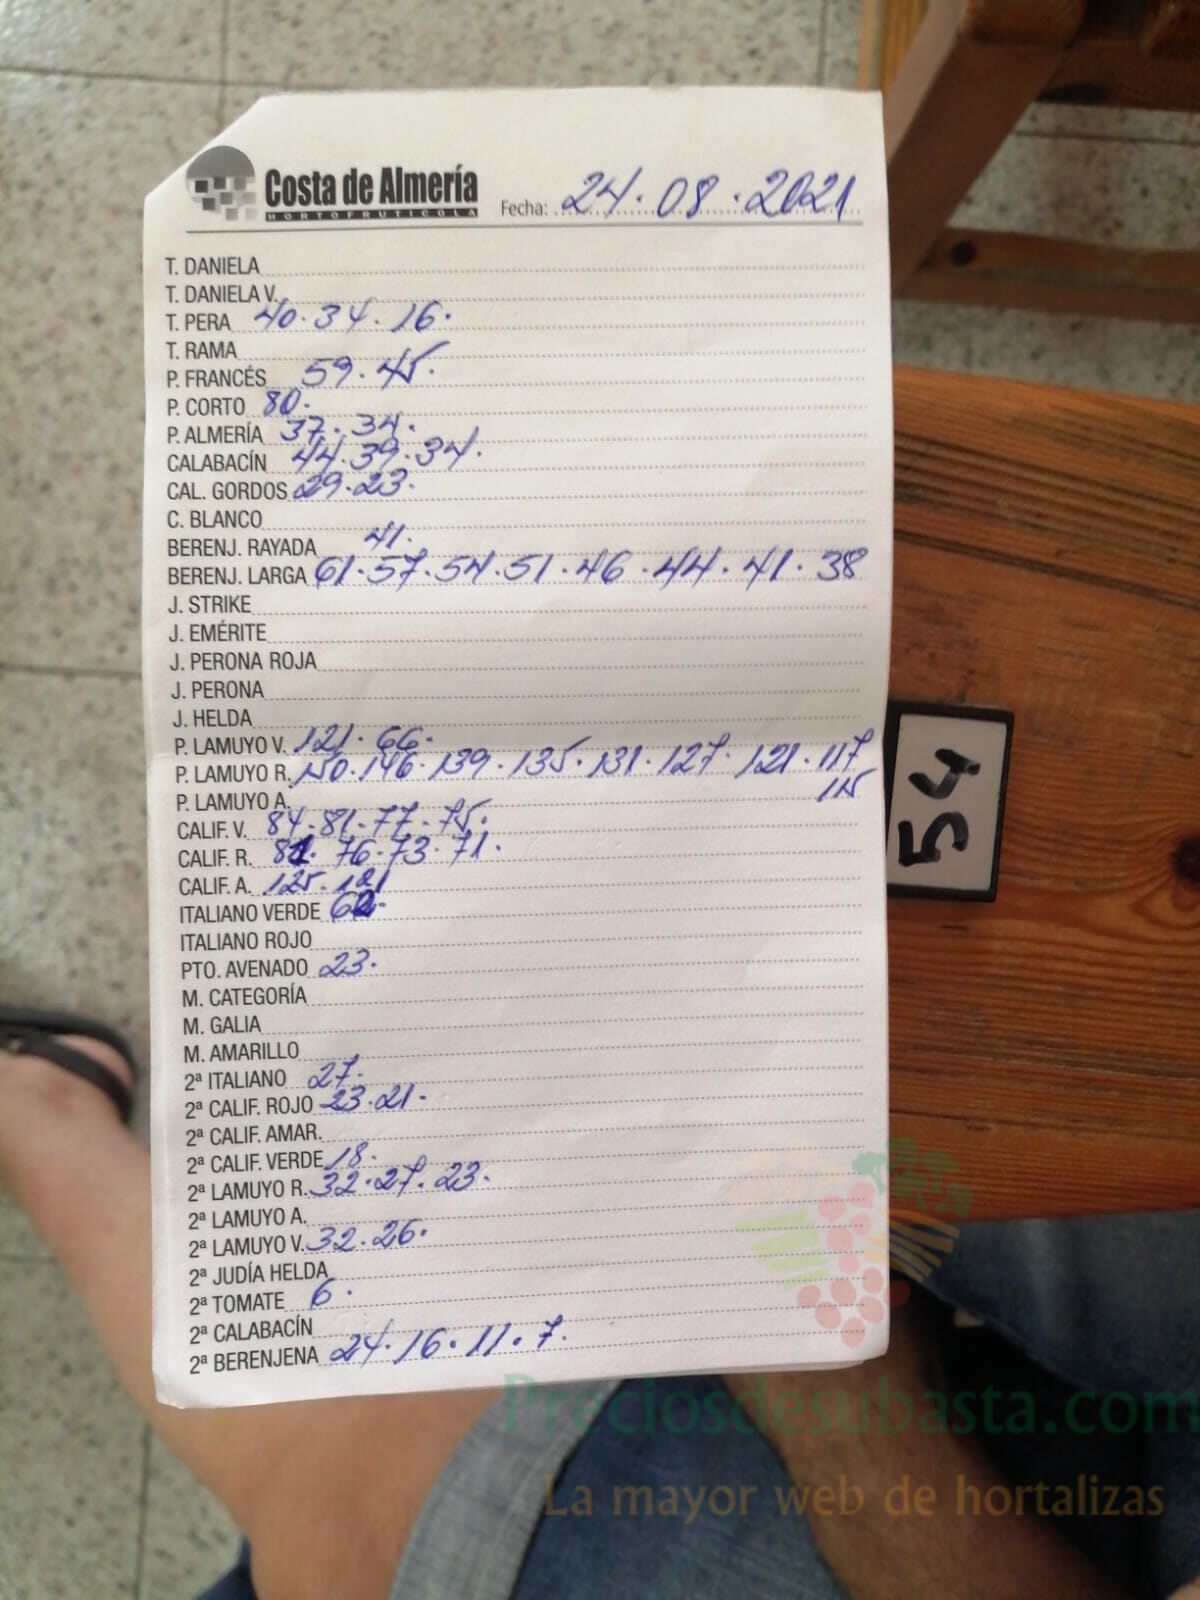 Costa de Almería
HORTOFRUTICOLA
Fecha: 24.08.2021
T. DANIELA
T. DANIELA V.
T. PERA 40.34.16.
T. RAMA
P. FRANCÉS 59.45.
P. CORTO 80.
P. ALMERÍA 37.34.
CALABACÍN 44.39.34.
CAL. GORDOS 29.23.
C. BLANCO
BERENJ. RAYADA 41.
BERENJ. LARGA 61.57.54.51.46.44.41.38
J. STRIKE
J. EMÉRITE
J. PERONA ROJA
J. PERONA
J. HELDA
P. LAMUYO V. 121.66.
P. LAMUYO R. 150.146.139.135.131.127.121.117
115
P. LAMUYO A.
CALIF. V. 84.81.77.75.
CALIF. R. 81.76.73.71.
CALIF. A. 125.121
ITALIANO VERDE 62.
ITALIANO ROJO
PTO. AVENADO 23.
M. CATEGORÍA
M. GALIA
M. AMARILLO
2ª ITALIANO 27.
2ª CALIF. ROJO 23.21.
2ª CALIF. AMAR.
2ª CALIF. VERDE 18.
2ª LAMUYO R. 32.27.23.
2ª LAMUYO A.
2ª LAMUYO V. 32.26.
2ª JUDÍA HELDA
2ª TOMATE 6.
2ª CALABACÍN
2ª BERENJENA 24.16.11.7.
54
Preciosdesubasta.com
La mayor web de hortalizas